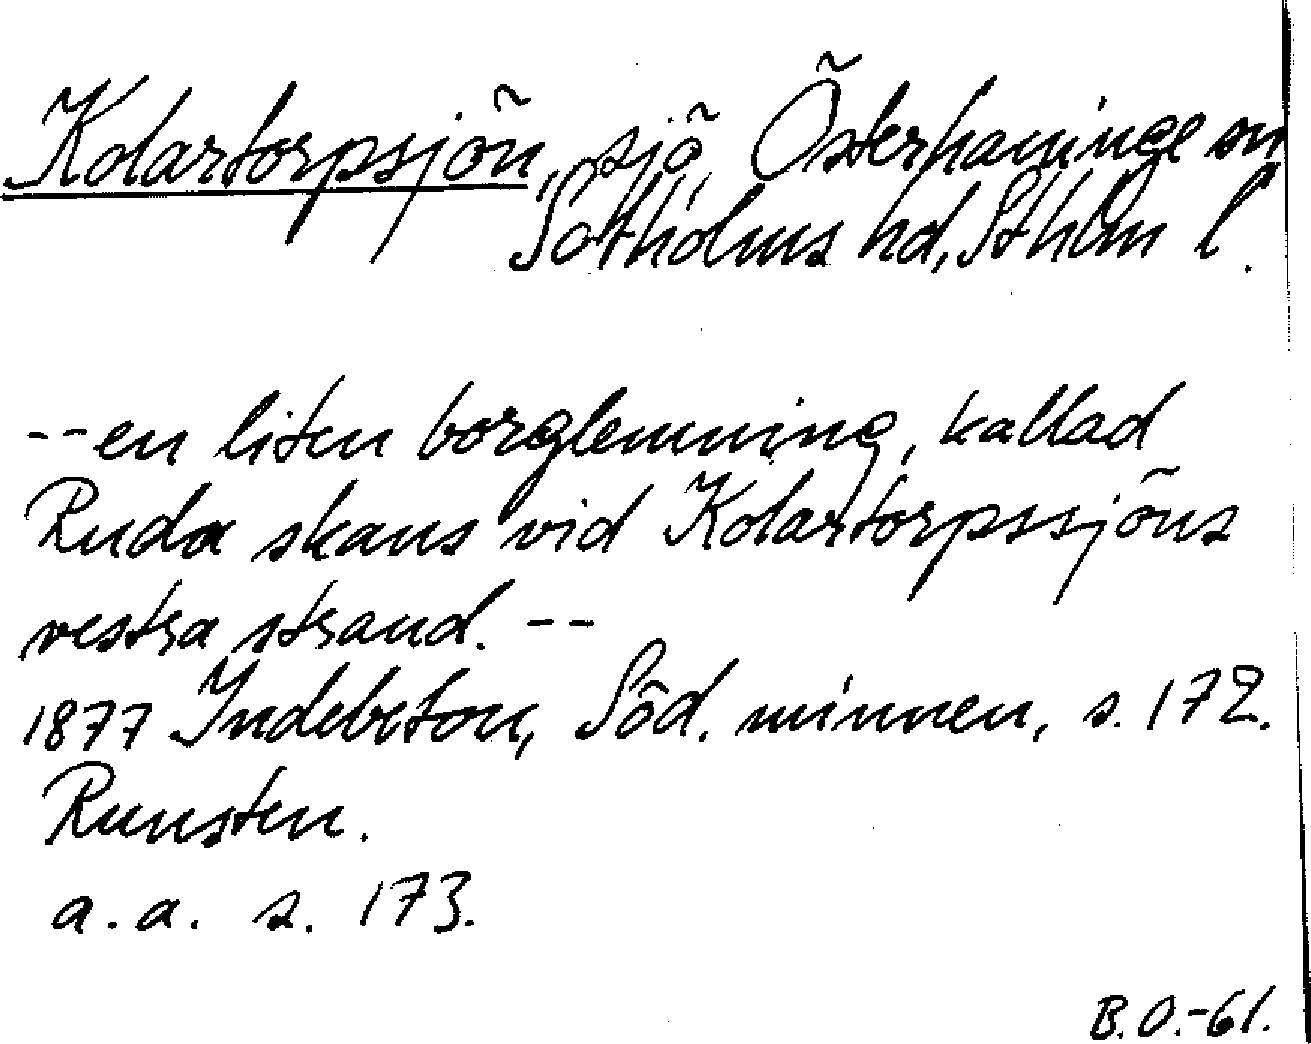 Kolartorpsjön, sjö, Österhaninge sn
Sotholms hd, Sthlm l.
--en liten borglemning, kallad
Ruda skans vid Kolartorpssjöns
vestra strand. --
1877 Indebetou, Söd. minnen, s. 172.
Runsten.
a. a. s. 173.
B.O.-61.